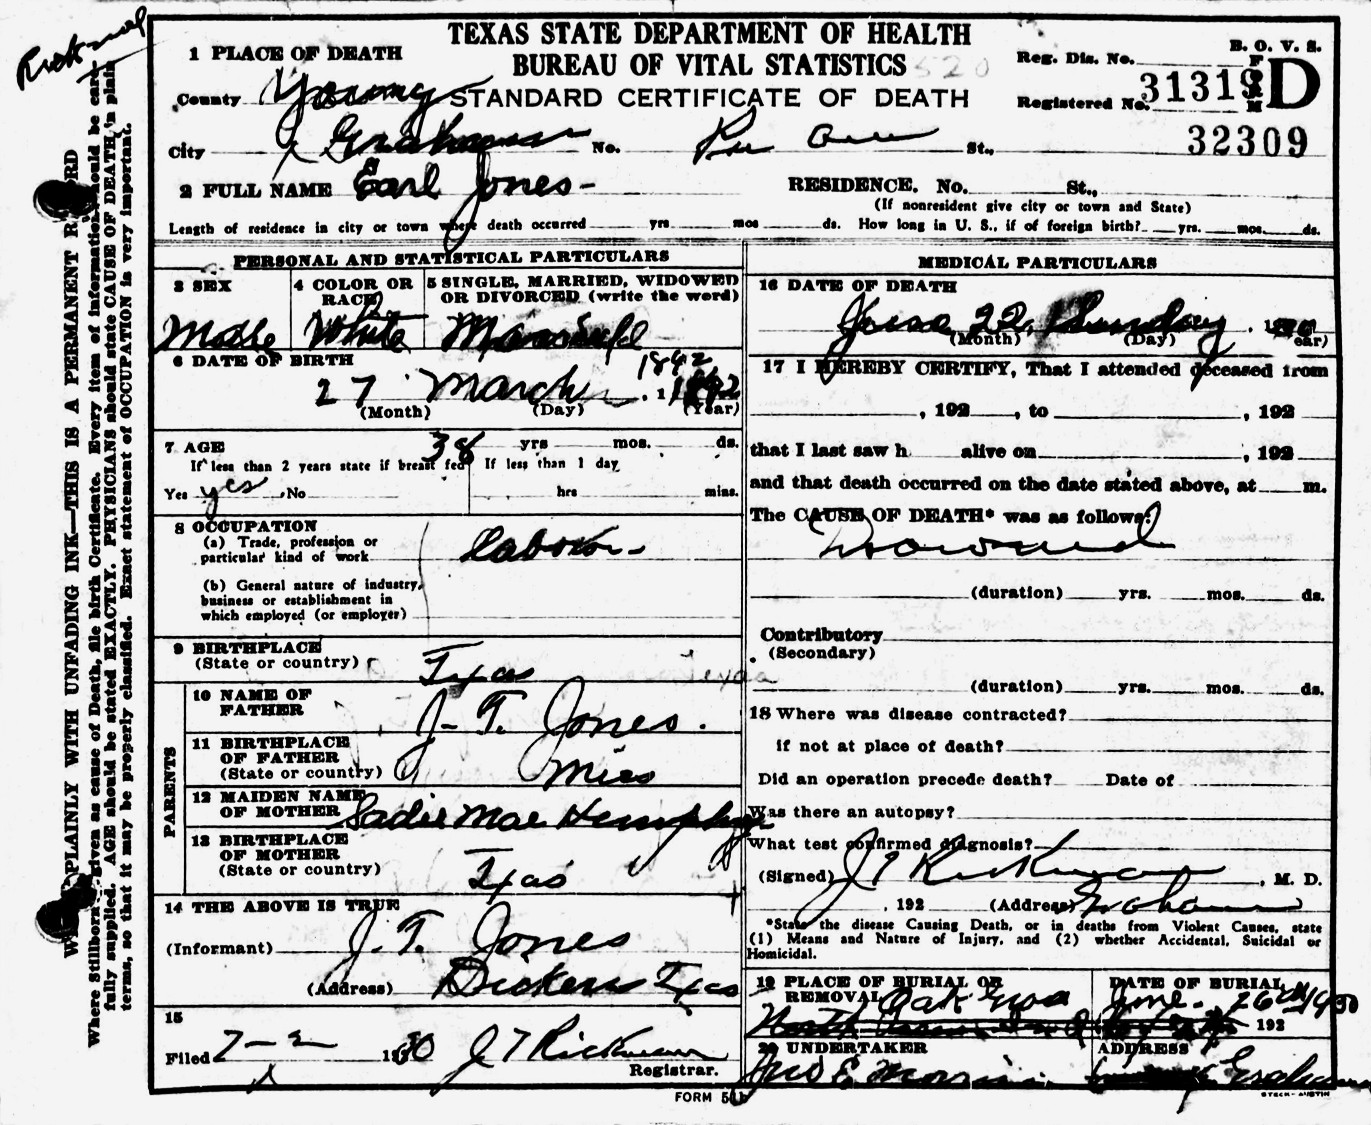 Rickman
TEXAS STATE DEPARTMENT OF HEALTH
BUREAU OF VITAL STATISTICS
520
STANDARD CERTIFICATE OF DEATH
B. O. V. S.
FORM D
Reg. Dis. No.
Registered No. 31319
32309
1 PLACE OF DEATH
County Young
City Graham No. St.,
2 FULL NAME Earl Jones- RESIDENCE. No. St.,
(If nonresident give city or town and State)
Length of residence in city or town where death occurred yrs mos ds. How long in U. S., if of foreign birth? yrs. mos. ds.
PERSONAL AND STATISTICAL PARTICULARS
3 SEX
Male
4 COLOR OR RACE
White
5 SINGLE, MARRIED, WIDOWED
OR DIVORCED (write the word)
Married
6 DATE OF BIRTH
1892
27 March , 1892
(Month) (Day) (Year)
7 AGE 38 yrs mos. ds.
If less than 2 years state if breast fed If less than 1 day
Yes yes , No hrs mins.
8 OCCUPATION
(a) Trade, profession or
particular kind of work Labor
(b) General nature of industry,
business or establishment in
which employed (or employer)
9 BIRTHPLACE
(State or country) Texas Texas
PARENTS
10 NAME OF
FATHER J. T. Jones.
11 BIRTHPLACE
OF FATHER
(State or country) Miss
12 MAIDEN NAME
OF MOTHER Sadie Mae Hemphly
13 BIRTHPLACE
OF MOTHER
(State or country) Texas
14 THE ABOVE IS TRUE
(Informant) J. T. Jones
(Address) Dickens Texas
15
Filed 7-2 1930 J T Rickman
Registrar.
MEDICAL PARTICULARS
16 DATE OF DEATH
June 22, Sunday , 1930
(Month) (Day) (Year)
17 I HEREBY CERTIFY, That I attended deceased from
, 192 , to , 192
that I last saw h alive on , 192
and that death occurred on the date stated above, at m.
The CAUSE OF DEATH* was as follows:
Drowned
(duration) yrs. mos. ds.
Contributory
(Secondary)
(duration) yrs. mos. ds.
18 Where was disease contracted?
if not at place of death?
Did an operation precede death? Date of
Was there an autopsy?
What test confirmed diagnosis?
(Signed) J T Rickman , M. D.
, 192 (Address) Graham
*State the disease Causing Death, or in deaths from Violent Causes, state
(1) Means and Nature of Injury, and (2) whether Accidental, Suicidal or
Homicidal.
19 PLACE OF BURIAL OR
REMOVAL Oak Grove
DATE OF BURIAL
June. 26th 1930
192
20 UNDERTAKER
E. Morrison
ADDRESS
Graham
FORM
STECK-AUSTIN
WRITE PLAINLY WITH UNFADING INK—THIS IS A PERMANENT RECORD
Where Stillborn is given as cause of Death, file birth Certificate. Every item of information should be care-
fully supplied. AGE should be stated EXACTLY. PHYSICIANS should state CAUSE OF DEATH in plain
terms, so that it may be properly classified. Exact statement of OCCUPATION is very important.